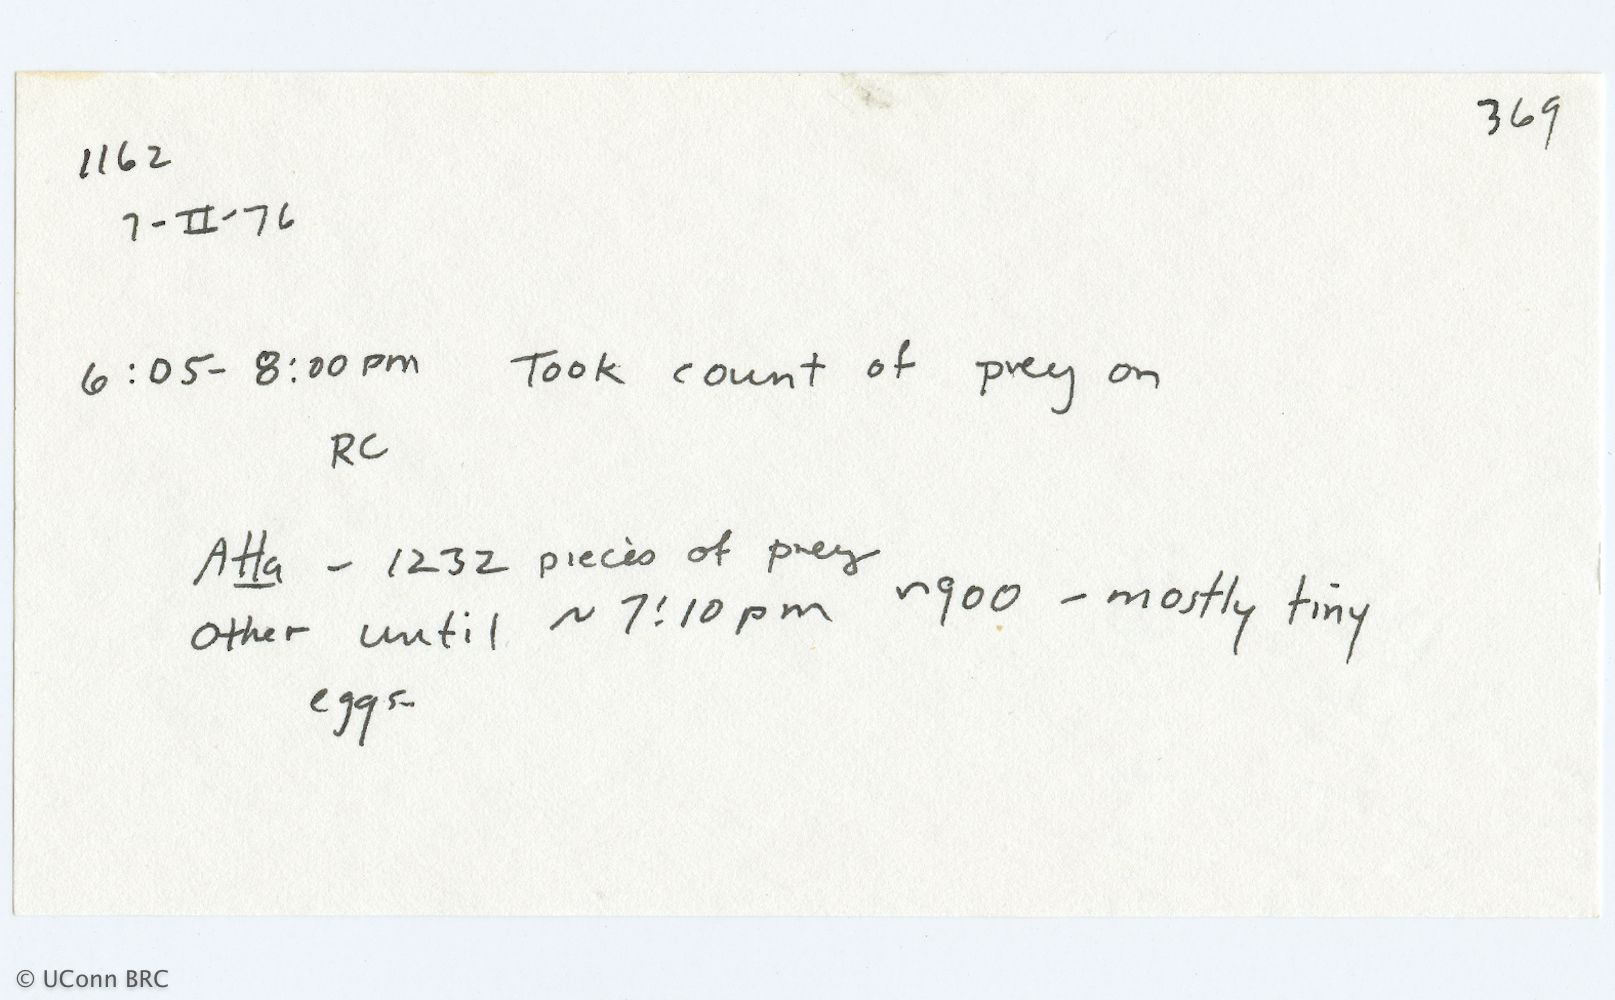 369
1162
7-II-76
6:05-8:00pm Took count of prey on
RC
Atta - 1232 pieces of prey
Other until ~ 7:10pm ~900 - mostly tiny
eggs-
© UConn BRC